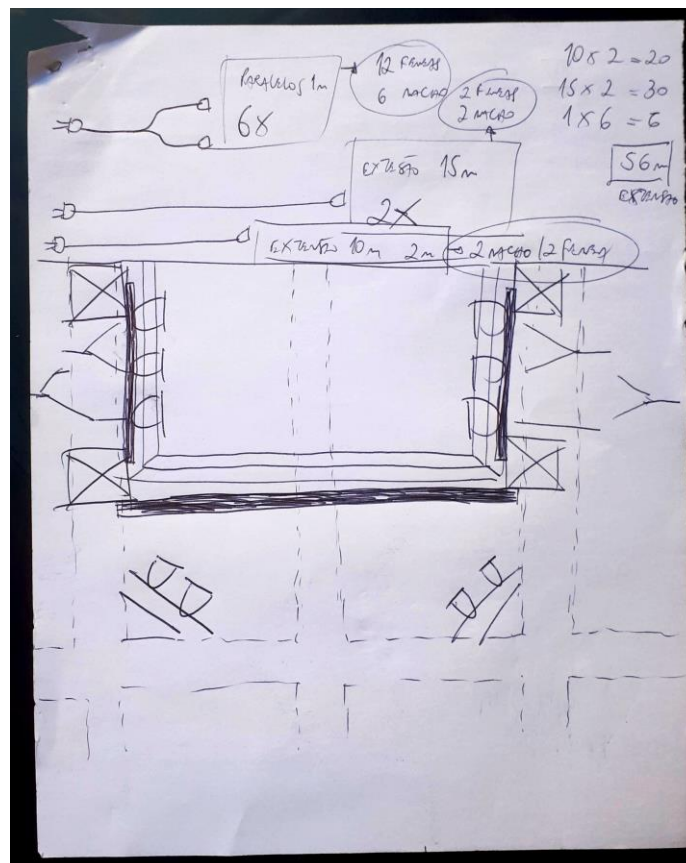 PARALELOS 1m
6X
12 FEMEAS
6 MACHO
2 FEMEAS
2 MACHO
10 x 2 = 20
15 x 2 = 30
1 x 6 = 6
56m
EXTENSÃO
EXTENSÃO 15m
2X
EXTENSÃO 10m 2m → 2 MACHO / 2 FEMEA